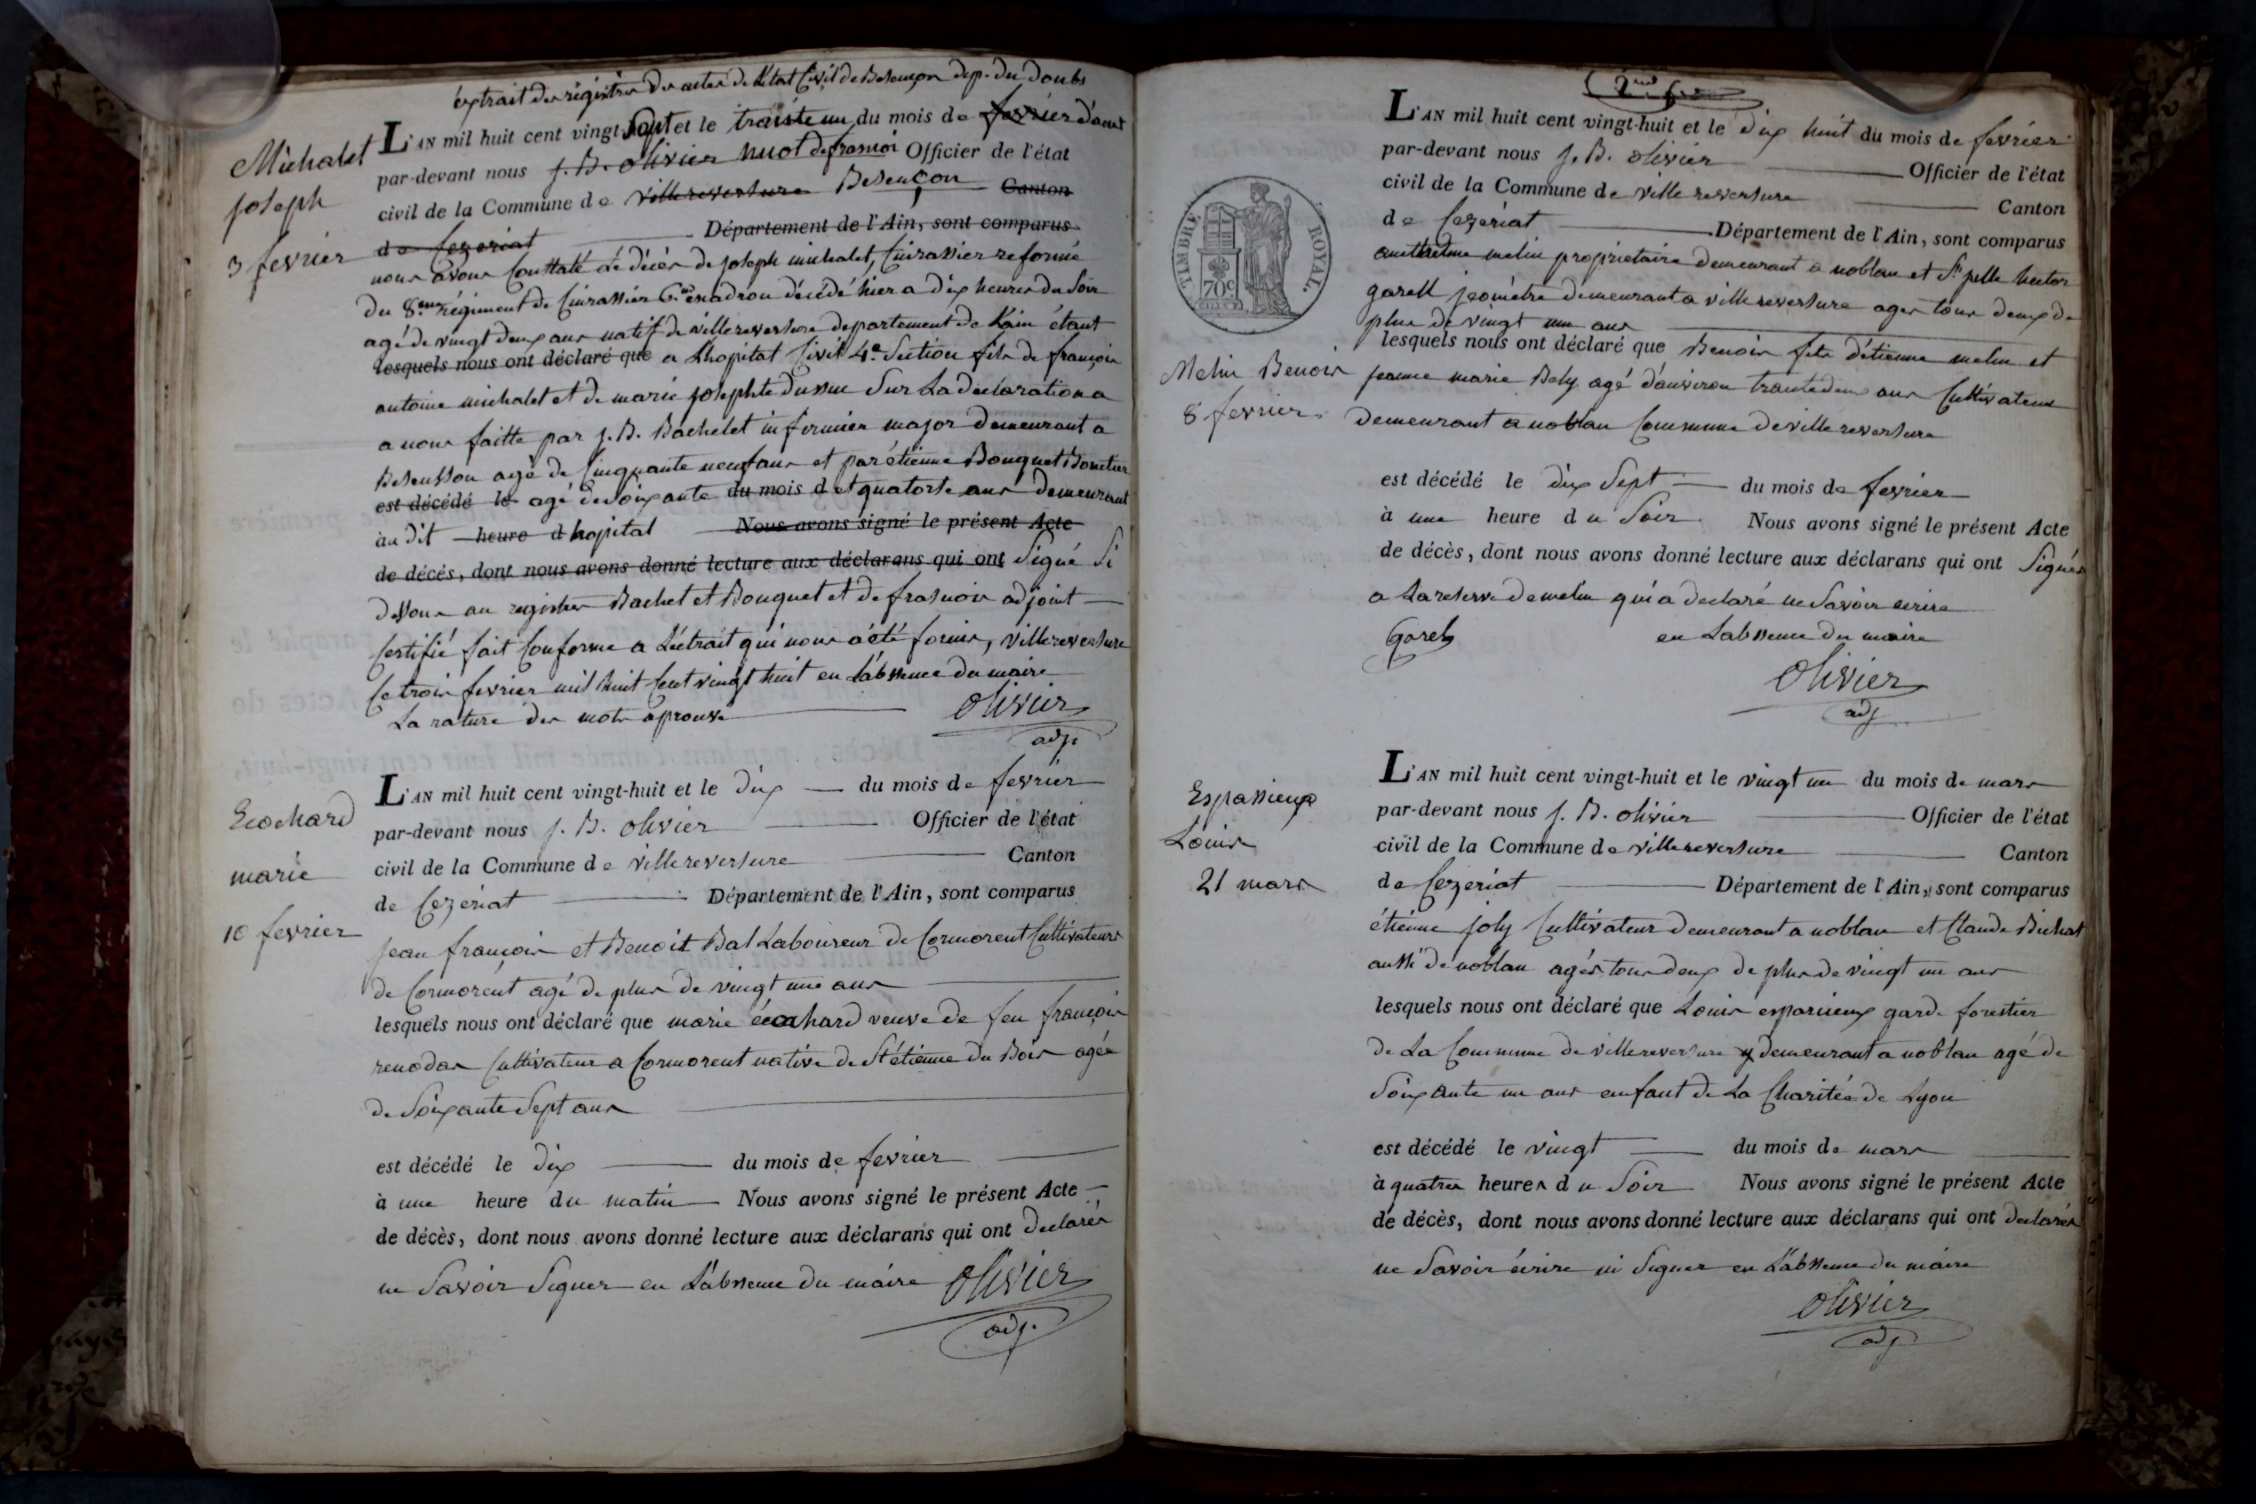 extrait des régistres des actes de L'état Civil de Besençon dep. du doubs
Michalet
joseph
3 fevrier
L'AN mil huit cent vingt sept et le trante un du mois de fevrier d'aout
par-devant nous J. B. olivier huot defrasnoi Officier de l'état
civil de la Commune de villereversure Besençon Canton
de Cezeriat Département de l'Ain, sont comparus
nous avons Conttaté Le décès de joseph michalet, Cuirassier reformé
du 8.eme régiment de Cuirassier 6.me escadron décédé hier a dix heures du Soir
agé de vingt deux ans natif de villereversure departement de L'ain étant
lesquels nous ont déclaré que a L'hopital Civil 4.e Section fils de françois
antoine michalet et de marie josephte dusuc Sur La declaration a
a nous faitte par J. B. Bachelet infirmier major demeurant a
Besensson agé de Cinquante neuf ans et par étienne Bouquet
est décédé le agé de Soixante du mois d et quatorse ans demeurant
au dit heure d hopital Nous avons signé le présent Acte
de décès, dont nous avons donné lecture aux déclarans qui ont Signé Si
dessous au registre Bachet et Bouquet et de frasnois adjoint
Certifié fait Conforme a L'etrait qui nous a été fournis, villereversure
Ce trois fevrier mil huit Cent vingt huit en L'absence du maire
La rature des mots aprouvé
olivier
adj.
Ecochard
marie
10 fevrier
L'AN mil huit cent vingt-huit et le dix du mois de fevrier
par-devant nous J. B. olivier Officier de l'état
civil de la Commune de villereversure Canton
de Cezériat Département de l'Ain, sont comparus
jean françois et Benoit Bal Laboureur de Cormorent Cultivateurs
de Cormorent agé de plus de vingt une ans
lesquels nous ont déclaré que marie écochard veuve de feu françois
renodas Cultivateur a Cormorent native de St étienne du Bois agée
de Soixante Sept ans
est décédé le dix du mois de fevrier
à une heure du matin Nous avons signé le présent Acte
de décès, dont nous avons donné lecture aux déclarans qui ont declarés
ne Savoir Signer en L'absence du maire olivier
adj.
TIMBRE ROYAL.
70c
Melin Benois
8 fevrier
L'AN mil huit cent vingt-huit et le dix huit du mois de fevrier
par-devant nous J. B. olivier Officier de l'état
civil de la Commune de villereversure Canton
de Cezeriat Département de l'Ain, sont comparus
melin proprietaire demeurant a noblan et hector
garell jeomètre demeurant a villereversure ages tous deux de
plus de vingt un ans
lesquels nous ont déclaré que Benois fils d'étienne melin et
jeanne marie Bely agé d'anviron trante deux ans Cultivateur
demeurant a noblan Commune de villereversure
est décédé le dix Sept du mois de fevrier
à une heure du Soir Nous avons signé le présent Acte
de décès, dont nous avons donné lecture aux déclarans qui ont Signés
a La reserve de melin qui a declaré ne Savoir écrire
Garel en L'absence du maire
olivier
adj
Espassieux
Louis
21 mars
L'AN mil huit cent vingt-huit et le vingt un du mois de mars
par-devant nous J. B. olivier Officier de l'état
civil de la Commune de villereversure Canton
de Cezeriat Département de l'Ain, sont comparus
étienne joly Cultivateur demeurant a noblan et Claude Bichat
aussi de noblan agés tous deux de plus de vingt un ans
lesquels nous ont déclaré que Louis esparsieux garde forestier
de La Commune de villereversure y demeurant a noblan agé de
Soixante un ans enfant de La Charitée de Lyon
est décédé le vingt du mois de mars
à quatres heures du Soir Nous avons signé le présent Acte
de décès, dont nous avons donné lecture aux déclarans qui ont declarés
ne Savoir écrire ni Signer en L'absence du maire
olivier
adj